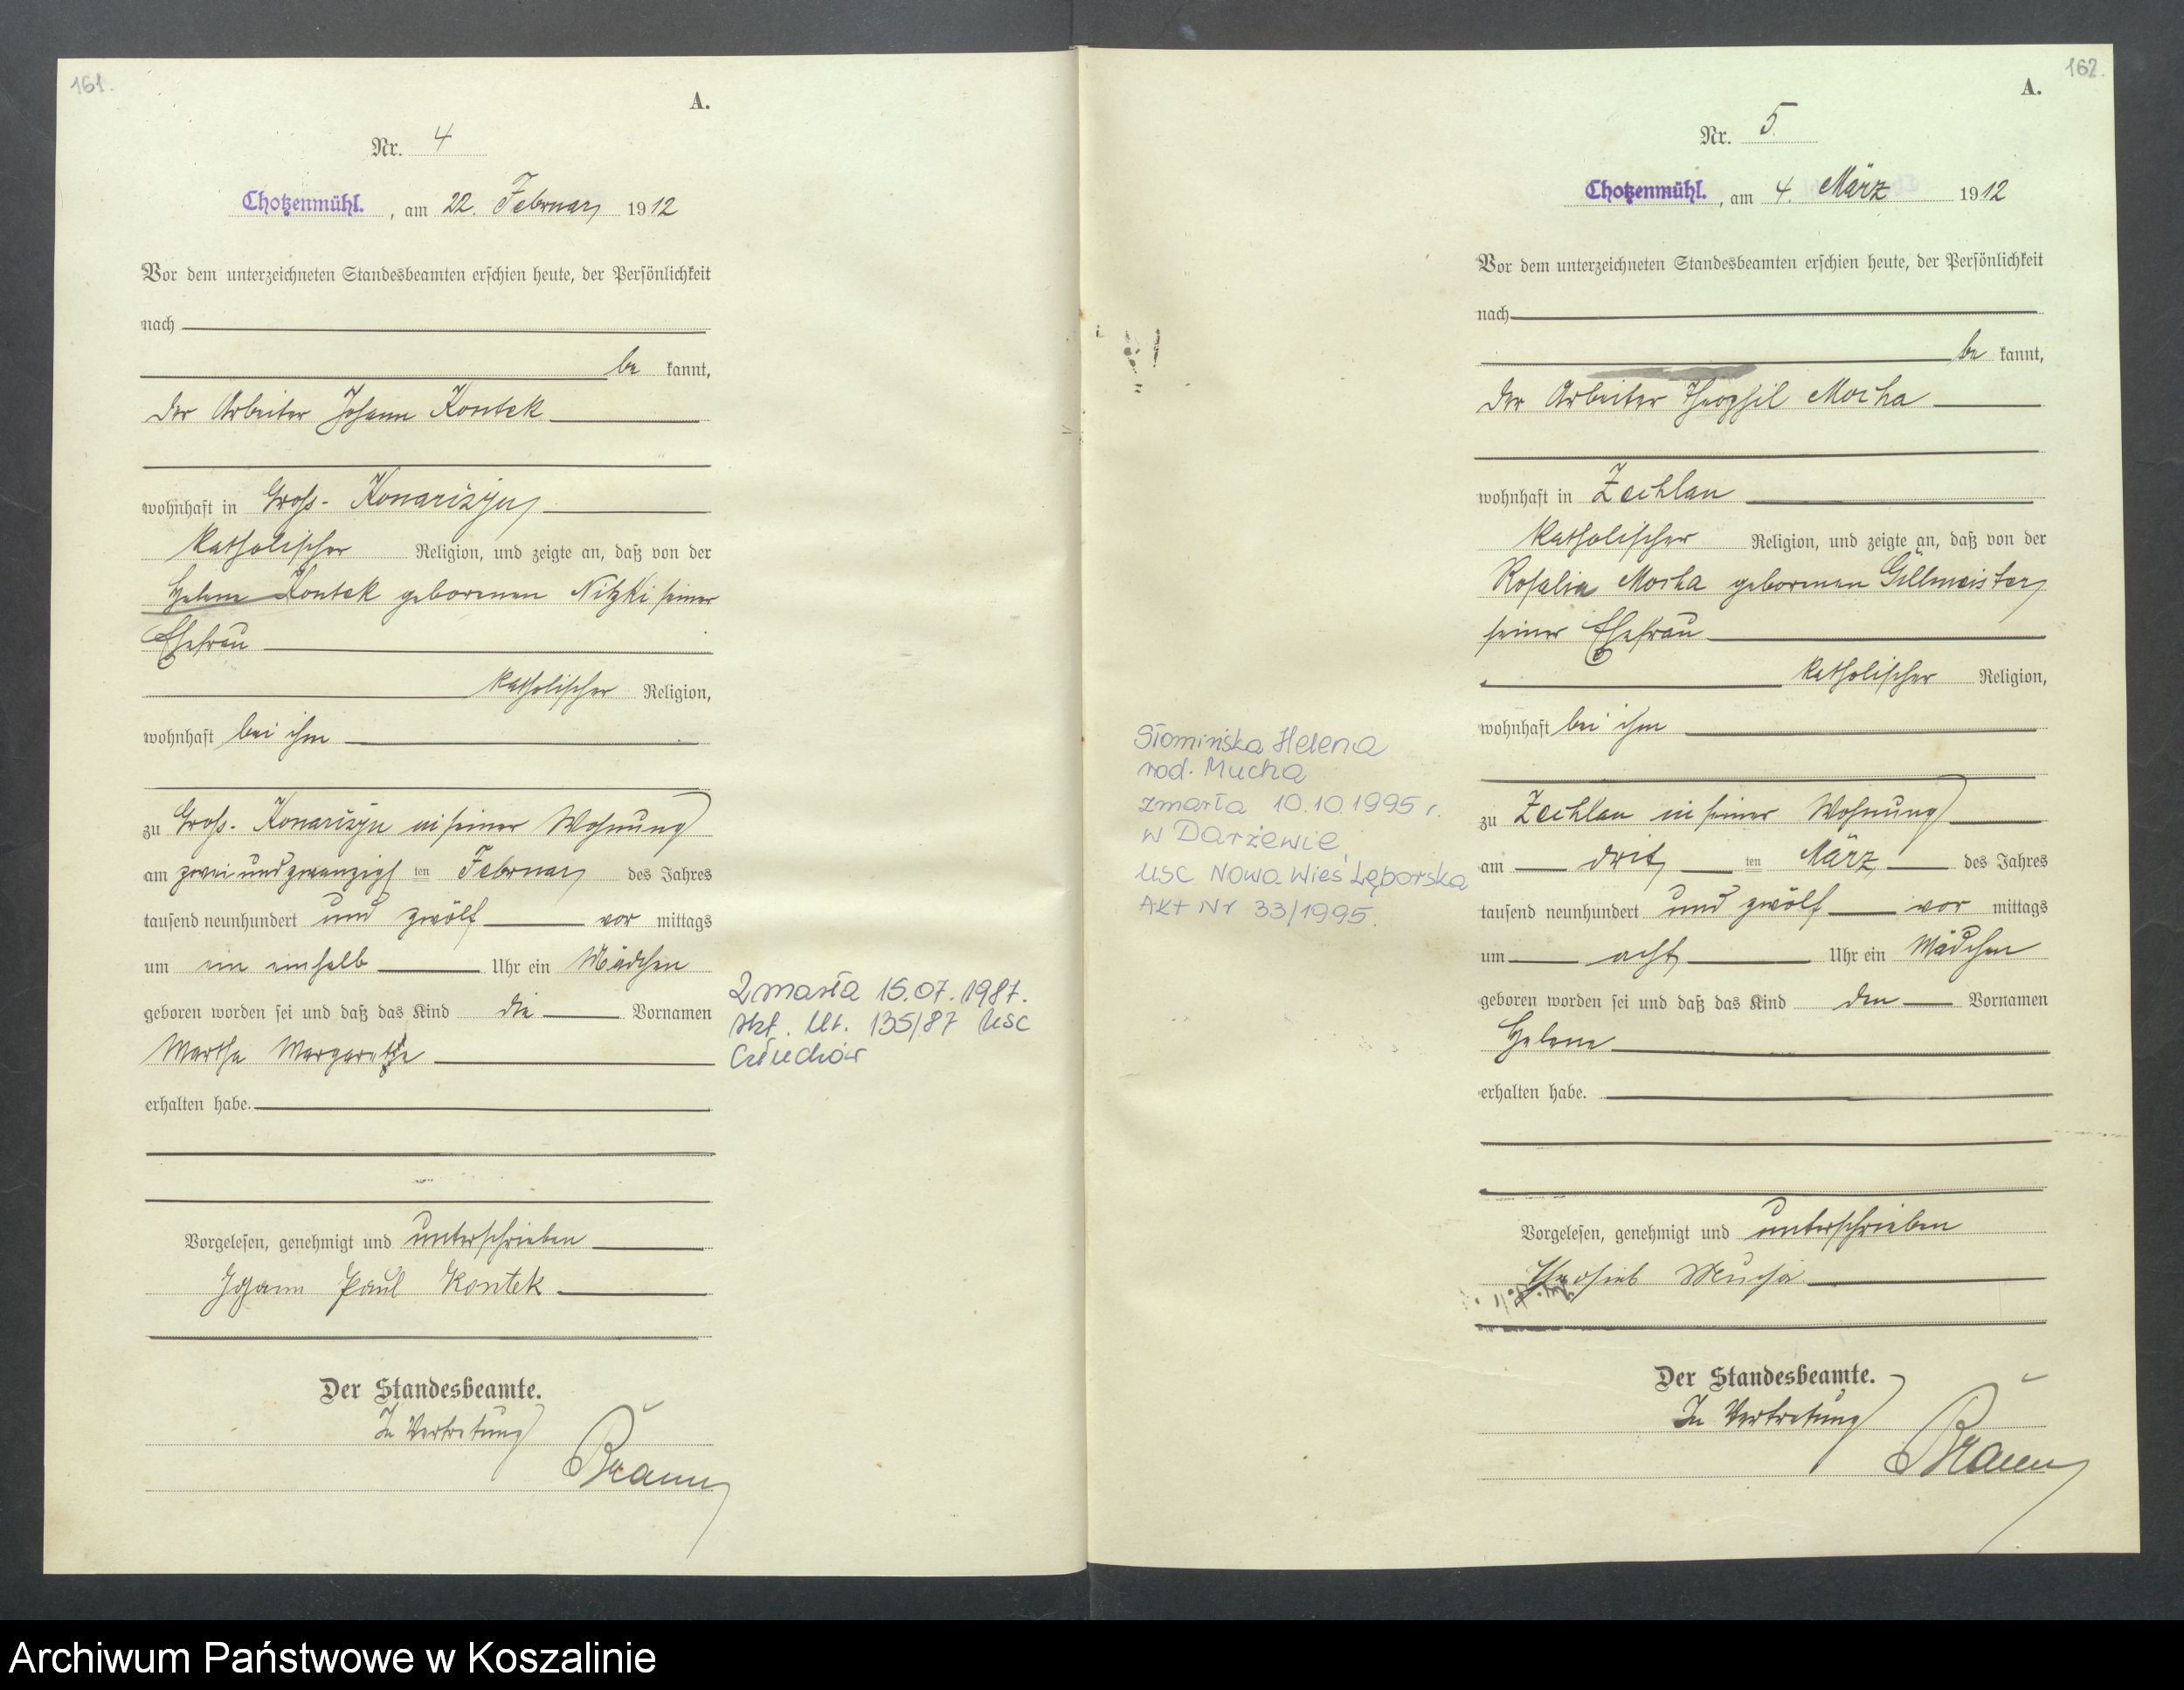 161.
A.
Nr. 4
Chotzenmühl. , am 22. Februar 1912
Vor dem unterzeichneten Standesbeamten erschien heute, der Persönlichkeit
nach
be kannt,
der Arbeiter Johann Kontek
wohnhaft in Groß-Konarczyn
katholischer Religion, und zeigte an, daß von der
Helene Kontek geborenen Nitzki seiner
Ehefrau
katholischer Religion,
wohnhaft bei ihm
zu Groß-Konarczyn in seiner Wohnung
am zwei und zwanzigsten Februar des Jahres
tausend neunhundert und zwölf vor mittags
um ein einhalb Uhr ein Mädchen
geboren worden sei und daß das Kind die Vornamen
Martha Margarethe
erhalten habe.
Vorgelesen, genehmigt und unterschrieben
Johann Paul Kontek
Der Standesbeamte.
In Vertretung
Braun
Zmarła 15.07.1987.
Akt. Nr. 135/87 USC
Człuchów
162.
A.
Nr. 5
Chotzenmühl. , am 4. März 1912
Vor dem unterzeichneten Standesbeamten erschien heute, der Persönlichkeit
nach
be kannt,
der Arbeiter Theophil Mocha
wohnhaft in Zechlau
katholischer Religion, und zeigte an, daß von der
Rosalia Mocha geborenen Gillmeister
seiner Ehefrau
katholischer Religion,
wohnhaft bei ihm
zu Zechlau in seiner Wohnung
am dritten März des Jahres
tausend neunhundert und zwölf vor mittags
um acht Uhr ein Mädchen
geboren worden sei und daß das Kind den Vornamen
Helene
erhalten habe.
Vorgelesen, genehmigt und unterschrieben
Mucha
Der Standesbeamte.
In Vertretung
Braun
Słomińska Helena
rod. Mucha
zmarła 10.10.1995 r.
w Darżewie
USC Nowa Wieś Lęborska
Akt Nr 33/1995.
Archiwum Państwowe w Koszalinie